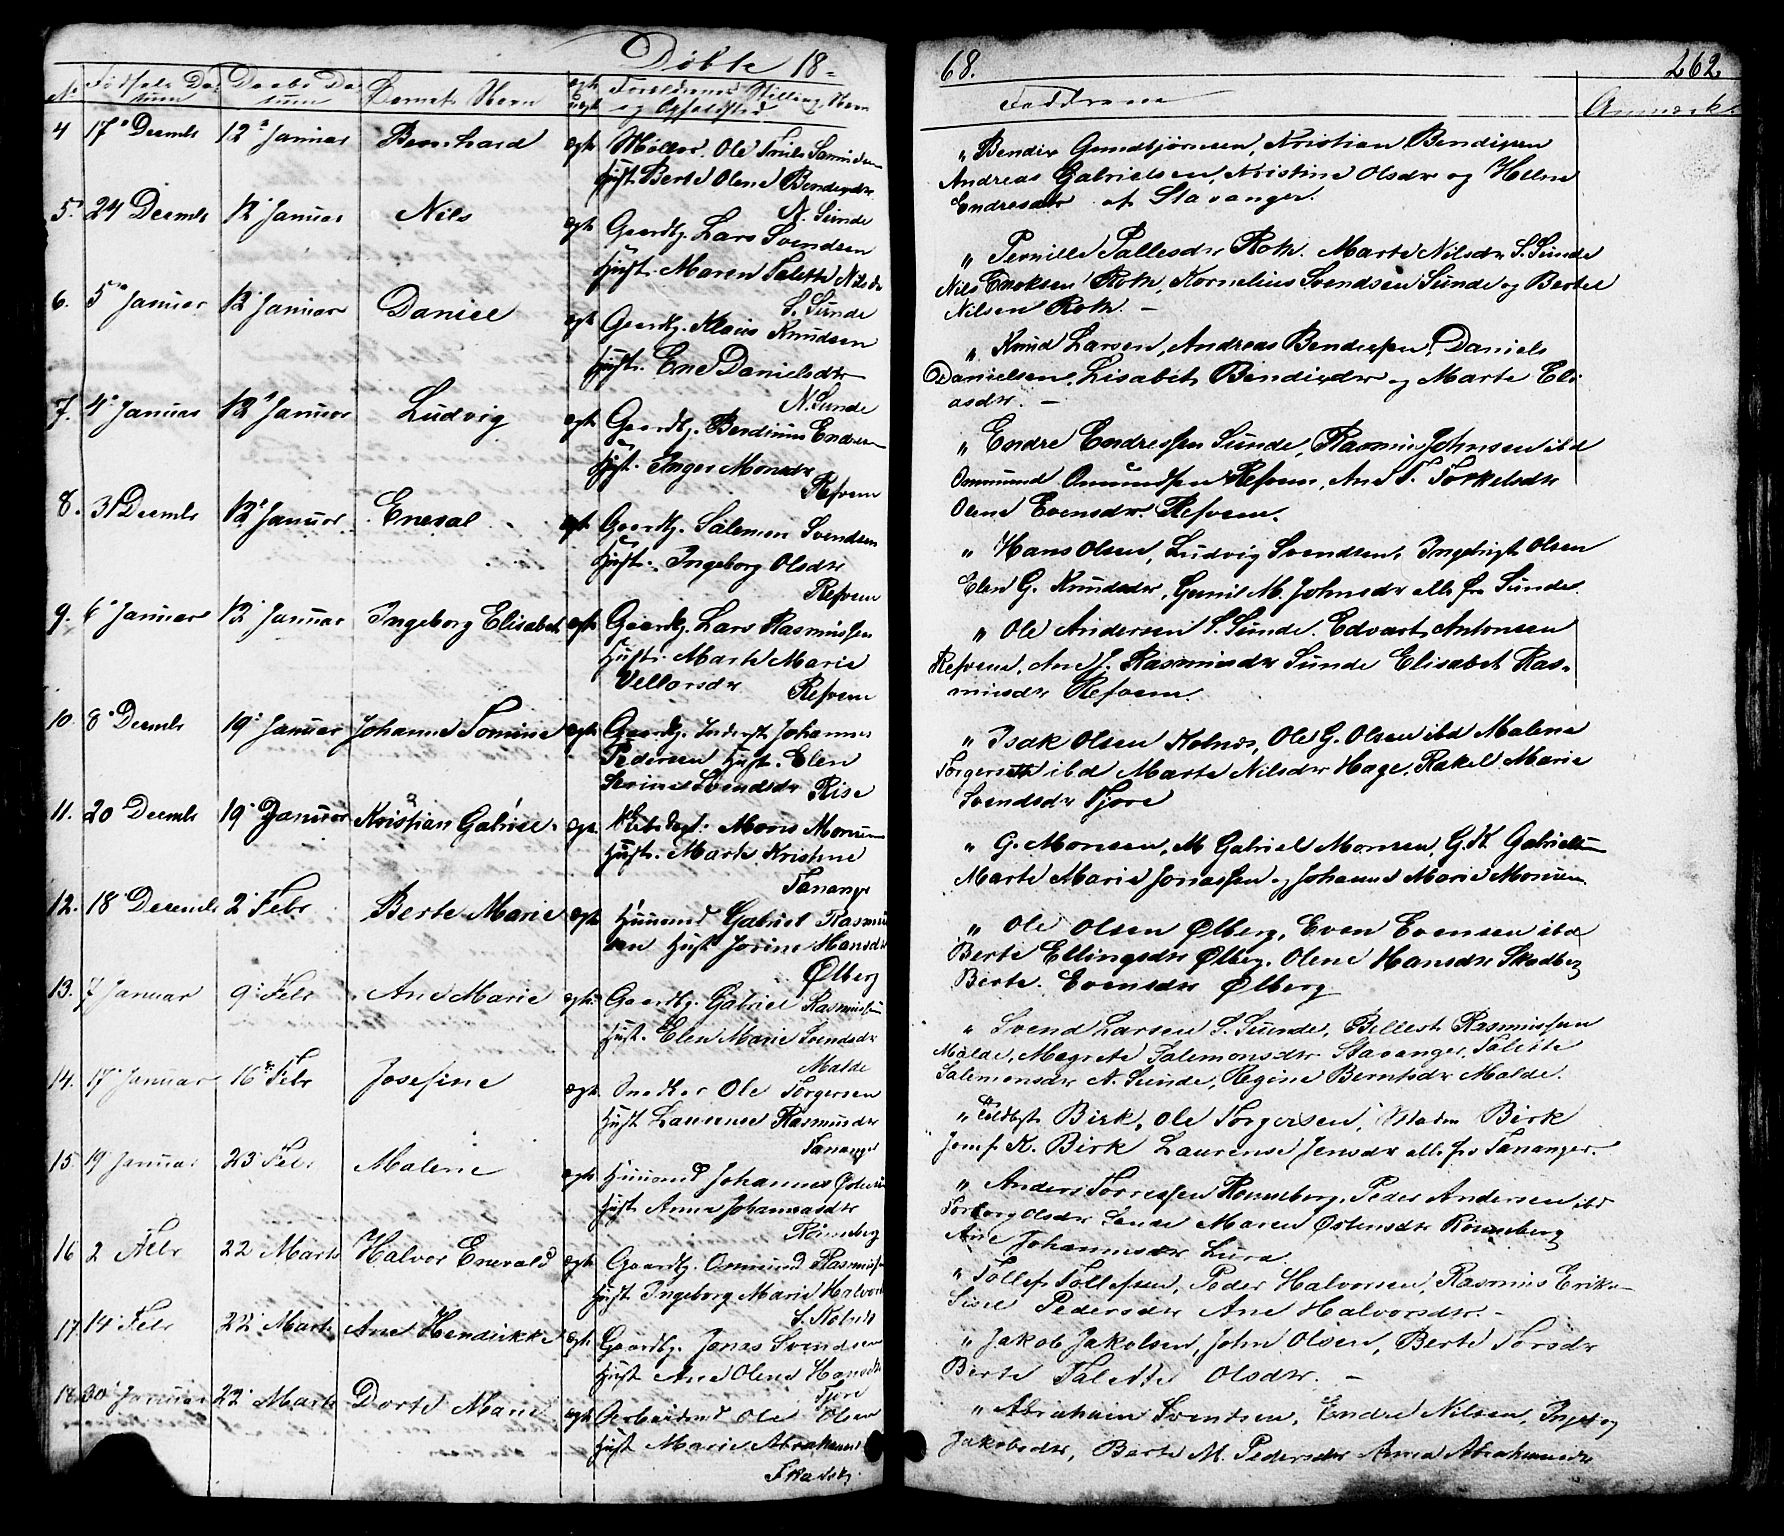 Døbte 18-
68.
262
No Fødsels Da- Daabs Da- Barnets Navn ægte Forældrenes Stilling, Navn
tum tum uægt og Opholdsted
Faddrene
Anmærk.
4 17 Decmb 12 Januar Bernhard ægte Møller. Ole
Hust. Berte Olene Bendixdr
N. Sunde
„ Bendix Gundbjørnsen, Kristian Bendixsen
Andreas Gabrielsen, Kristine Olsdr og Helene
Endresdr af Stavanger.
5 24 Decmb 12 Januar Nils ægte Gaardbr. Lars Svendsen
Hust. Maren Talette Nilsdr
S. Sunde
„ Pernille Pallesdr Roth. Marte Nilsdr S. Sunde
Nils Enoksen Roth, Kornelius Svendsen Sunde og Bertel
Nilsen Roth. –
6. 5 Januar 12 Januar Daniel ægte Gaardbr. Klaus Knudsen
Hust. Ene Danielsdr
N. Sunde
„ Knud Larsen, Andreas Bendixsen, Daniels
Danielsen, Lisabet Bendixdr og Marte Eli
asdr. –
7. 4 Januar 12 Januar Ludvig ægte Gaardbr. Berdinus Endresen
Hust. Inger Monsdr
Refvem
„ Endre Endressen Sunde, Rasmus Johnsen ibd
Ommund Omundsen Refvem, Ane T. Torkelsdr
Olene Evensdr. Refvem.
8. 31 Decmb 12 Januar Eneval ægt Gaardbr. Salemon Svendsen
Hust. Ingeborg Olsdr
Refvem
„ Hans Olsen, Ludvig Svendsen, Ingebrigt Olsen
Elen G. Knudsdr, Gunil M. Johnsdr alle fra Sunde.
9. 6 Januar 12 Januar Ingeborg Elisabet ægte Gaardbr. Lars Rasmussen
Hust. Marte Marie
Vellorsdr Refvem
„ Ole Andersen S. Sunde. Edvart Antonsen
Refvem, Ane J. Rasmusdr Sunde Elisabet Ras-
musdr Refvem.
10. 8 Decmb 19 Januar Johanne Tomine ægte Gaardbr. Johannes
Pedersen Hust. Elen
Serine Svendsdr Rise
„ Isak Olsen Kolnes, Ole G. Olsen ibd Malene
Torgersdr ibd Marte Nilsdr Hage, Rakel Marie
Svendsdr Tjore
11. 20 Decmb 19 Januar Kristian Gabriel ægte Mons Monsen
Hust. Marte Kristine
Tananger
„ G. Monsen, M Gabriel Monsen, G. K Gabrielsen
Marte Marie Jonassen og Johanne Marie Monsen
12. 18 Decemb 2 Febr Berte Marie ægte Huusmd Gabriel Rasmus
sen Hust Jorine Hansdr
Ølberg
„ Ole Olsen Ølberg, Even Evensen ibd
Berte Ellingsdr Ølberg. Olene Hansdr Skadberg
Berte. Evensdr Ølberg
13. 7 Januar 9 Febr Ane Marie ægte Gaardbr. Gabriel Rasmussen
Hust. Elen Marie Svendsdr
Malde
„ Svend Larsen S. Sunde, Billert Rasmussen
Malde, Magrete Salemonsdr Stavanger, Talette
Salemonsdr N. Sunde, Regine Berntsdr Malde.
14. 17 Januar 16 Febr Josefine ægte Snedker Ole Torgersen
Hust Laurense Rasmusdr
Tananger
„ Birk, Ole Torgersen, Madm Birk
Josef K. Birk Laurense Jensdr alle fra Tananger.
15. 19 Januar 23 Febr Malene ægte Huusmd Johannes Østensen
Hust Anna Johannesdr
Rønneberg
„ Anders Torressen Rønneberg. Peder Andersen ibd
Torborg Olsdr Sande Maren Østensdr Rønneberg
Ane Johannesdr Lura
16 2 Febr 22 Marts Halvor Enevald ægte Gaardbr. Ommund Rasmussen
Hust Ingeborg Marie Halvorsdr
S. Kolnes
„ Tollef Tollefsen, Peder Halvorsen, Rasmus Eriksen
Sisel Pedersdr Ane Halvorsdr. –
17 14 Febr 22 Marts Ane Hendrikke ægte Gaardbr. Jonas Svendsen
Hust Ane Olene Hansdr
Tjore
„ Jakob Jakobsen, John Olsen, Berte Torsdr
Berte Talette Olsdr. –
18. 30 Januar 22 Marts Dorte Marie ægte Arbeidsmd Ole Olsen
Hust Marie Abrahamsdr
„ Abraham Svendsen, Endre Nilsen, Ingeborg
Jakobsdr, Berte M. Pedersdr Anna Abrahamsdr